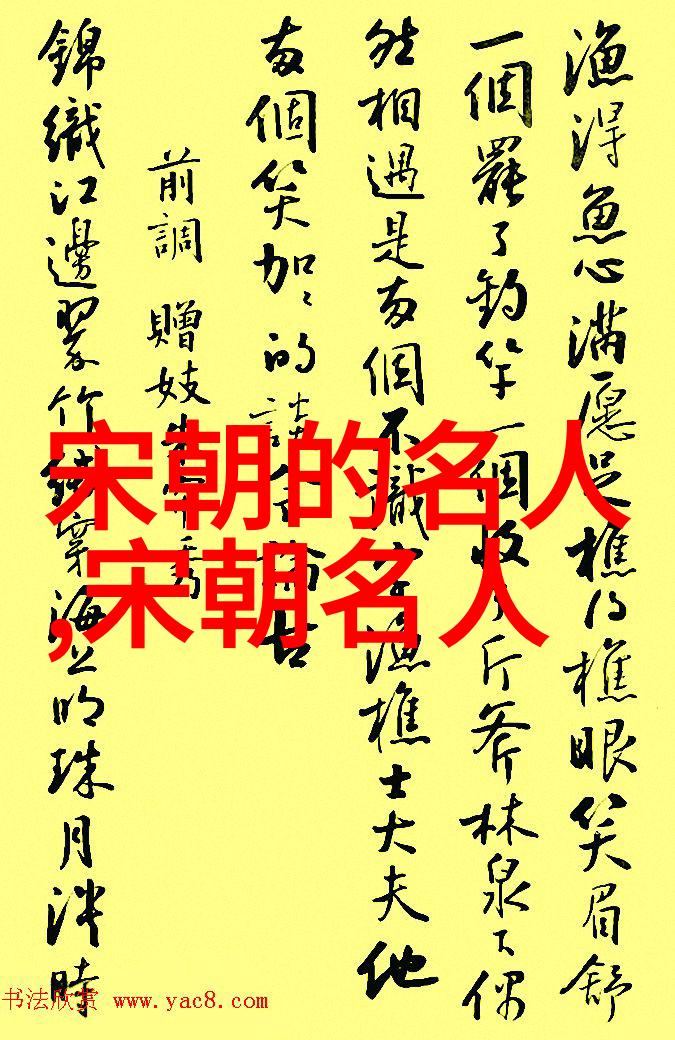 漁得魚心滿愿足樵得樵眼笑眉舒
一個罷了釣竿一個收了斤斧林泉下偶
然相遇是兩個不識字漁樵士大夫他
兩個笑加〻的談今論古
前調 贈妓朱秀
錦織江邊翠竹絨穿海上明珠月泮時
宋朝的名人
,宋朝名人
书法欣赏 www.yac8.com